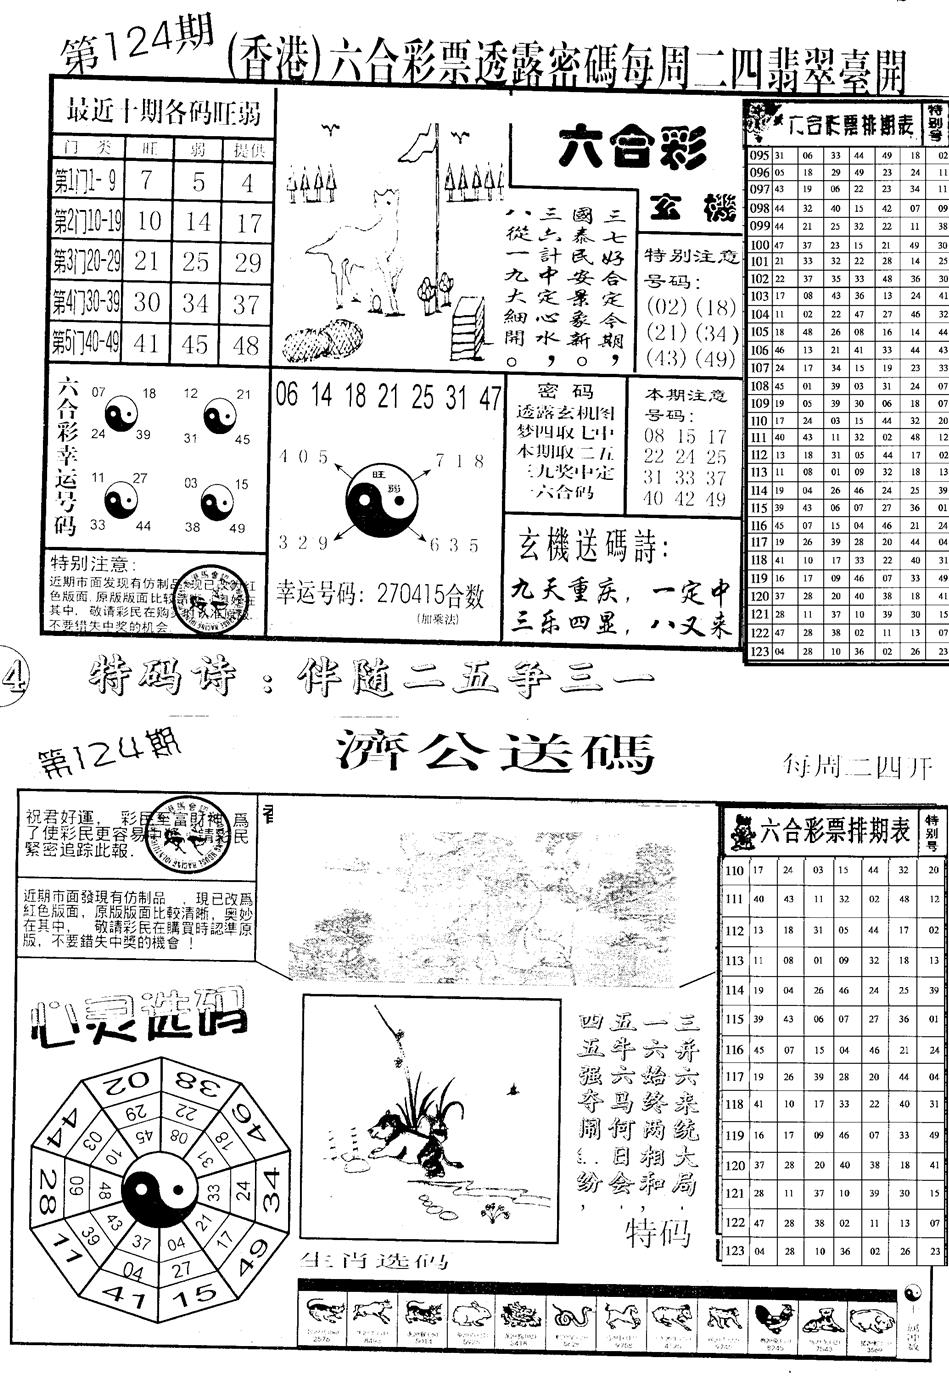 第124期
(香港)六合彩票透露密碼每周二四翡翠臺開
最近十期各码旺弱
门 类 旺 弱 提供
第1门1-9 7 5 4
第2门10-19 10 14 17
第3门20-29 21 25 29
第4门30-39 30 34 37
第5门40-49 41 45 48
六合彩
玄機
三七好合定今期，
國泰民安景象新。
三六計中定心水，
八從一九大細開。
特别注意
号码：
(02) (18)
(21) (34)
(43) (49)
六合彩幸运号码
07 18 12 21
24 39 31 45
11 27 03 15
33 44 38 49
06 14 18 21 25 31 47
4 0 5 7 1 8
旺
弱
3 2 9 6 3 5
幸运号码：270415合数
(加乘法)
密 码
透露玄机图
梦四取七中
本期取二五
三九奖中定
一六合码
本期注意
号码：
08 15 17
22 24 25
31 33 37
40 42 49
玄機送碼詩：
九天重庆，一定中
三乐四显，八又来
特别注意：
近期市面发现有仿制品
色版面,原版版面比较
其中，敬请彩民在购
不要错失中奖的机会
六合彩票排期表 特别号
095 31 06 33 44 49 18 02
096 05 18 29 49 23 24 11
097 43 19 06 22 23 34 11
098 44 32 40 15 42 07 09
099 44 21 25 32 22 11 38
100 47 37 23 15 21 49 30
101 21 33 32 22 28 14 25
102 22 37 35 33 48 36 30
103 17 08 43 36 13 24 41
104 11 02 22 47 27 46 32
105 18 48 26 08 16 14 44
106 46 13 21 41 33 44 43
107 24 17 34 15 19 23 33
108 45 01 39 03 31 24 07
109 19 05 39 30 06 18 07
110 17 24 03 15 44 32 20
111 40 43 11 32 02 48 12
112 13 18 31 05 44 17 02
113 11 08 01 09 32 18 13
114 19 04 26 46 24 25 39
115 39 43 06 07 27 36 01
116 45 07 15 04 46 21 24
117 19 26 39 28 20 44 04
118 41 10 17 33 22 40 31
119 16 17 09 46 07 33 49
120 37 28 20 40 38 18 41
121 28 11 37 10 39 30 15
122 47 28 38 02 11 13 07
123 04 28 10 36 02 26 23
4
特码诗：伴随二五争三一
第124期
濟公送碼
每周二四开
祝君好運， 彩民至富財神 爲
了使彩民更容易中獎，請彩民
緊密追踪此報．
近期市面發現有仿制品 ，現已改爲
紅色版面，原版版面比較清晰，奥妙
在其中， 敬請彩民在購買時認準原
版，不要錯失中獎的機會！
心灵选码
02 38 46 34 49 15 41 11 28 44
29 22 18 24 17 27 04 39 09 03
45 08 31 33 21 04 37 43 48 10
三弃六来统大局
一六始终两相和
五牛六马何日会
四五强夺闹
纷
特码
生肖选码
六合彩票排期表 特别号
110 17 24 03 15 44 32 20
111 40 43 11 32 02 48 12
112 13 18 31 05 44 17 02
113 11 08 01 09 32 18 13
114 19 04 26 46 24 25 39
115 39 43 06 07 27 36 01
116 45 07 15 04 46 21 24
117 19 26 39 28 20 44 04
118 41 10 17 33 22 40 31
119 16 17 09 46 07 33 49
120 37 28 20 40 38 18 41
121 28 11 37 10 39 30 15
122 47 28 38 02 11 13 07
123 04 28 10 36 02 26 23